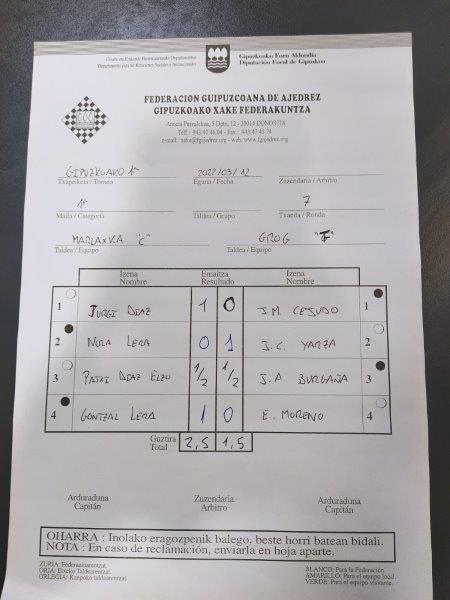 Gizarte eta Erakunde Harremanetarako Departamentua
Departamento para las Relaciones Sociales e Institucionales
Gipuzkoako Foru Aldundia
Diputación Foral de Gipuzkoa
FEDERACION GUIPUZCOANA DE AJEDREZ
GIPUZKOAKO XAKE FEDERAKUNTZA
Anoeta Pasealekua, 5 Dpto. 12 - 20014 DONOSTIA
Telf.: 943 47 46 04 - Fax.: 943 47 45 74
e-mail: xake@fgajedrez.org - web: www.fgajedrez.org
GIPUZKOAKO 1ª 2022/03/12
Txapelketa / Torneo Eguna / Fecha Zuzendaria / Arbitro
1ª 7
Maila / Categoría Taldea / Grupo Txanda / Ronda
"C" GROG
Taldea / Equipo Taldea / Equipo
Izena Emaitza Izena
Nombre Resultado Nombre
1 JURGI DIAZ 1 0 J.M. CEJUDO 1
2 NORA LERA 0 1 J.C. YARZA 2
3 PATXI DIAZ ELZO 1/2 1/2 J.A BURGAÑA 3
4 GONTZAL LERA 1 0 E. MORENO 4
Guztira
Total 2,5 1,5
Arduraduna Zuzendaria Arduraduna
Capitán Arbitro Capitán
OHARRA : Inolako eragozpenik balego, beste horri batean bidali.
NOTA : En caso de reclamación, enviarla en hoja aparte.
ZURIA: Federazioarentzat.
ORIA: Etxeko Taldearentzat.
ORLEGIA: Kanpoko taldearentzat.
BLANCO: Para la Federación.
AMARILLO: Para el equipo local.
VERDE: Para el equipo visitante.